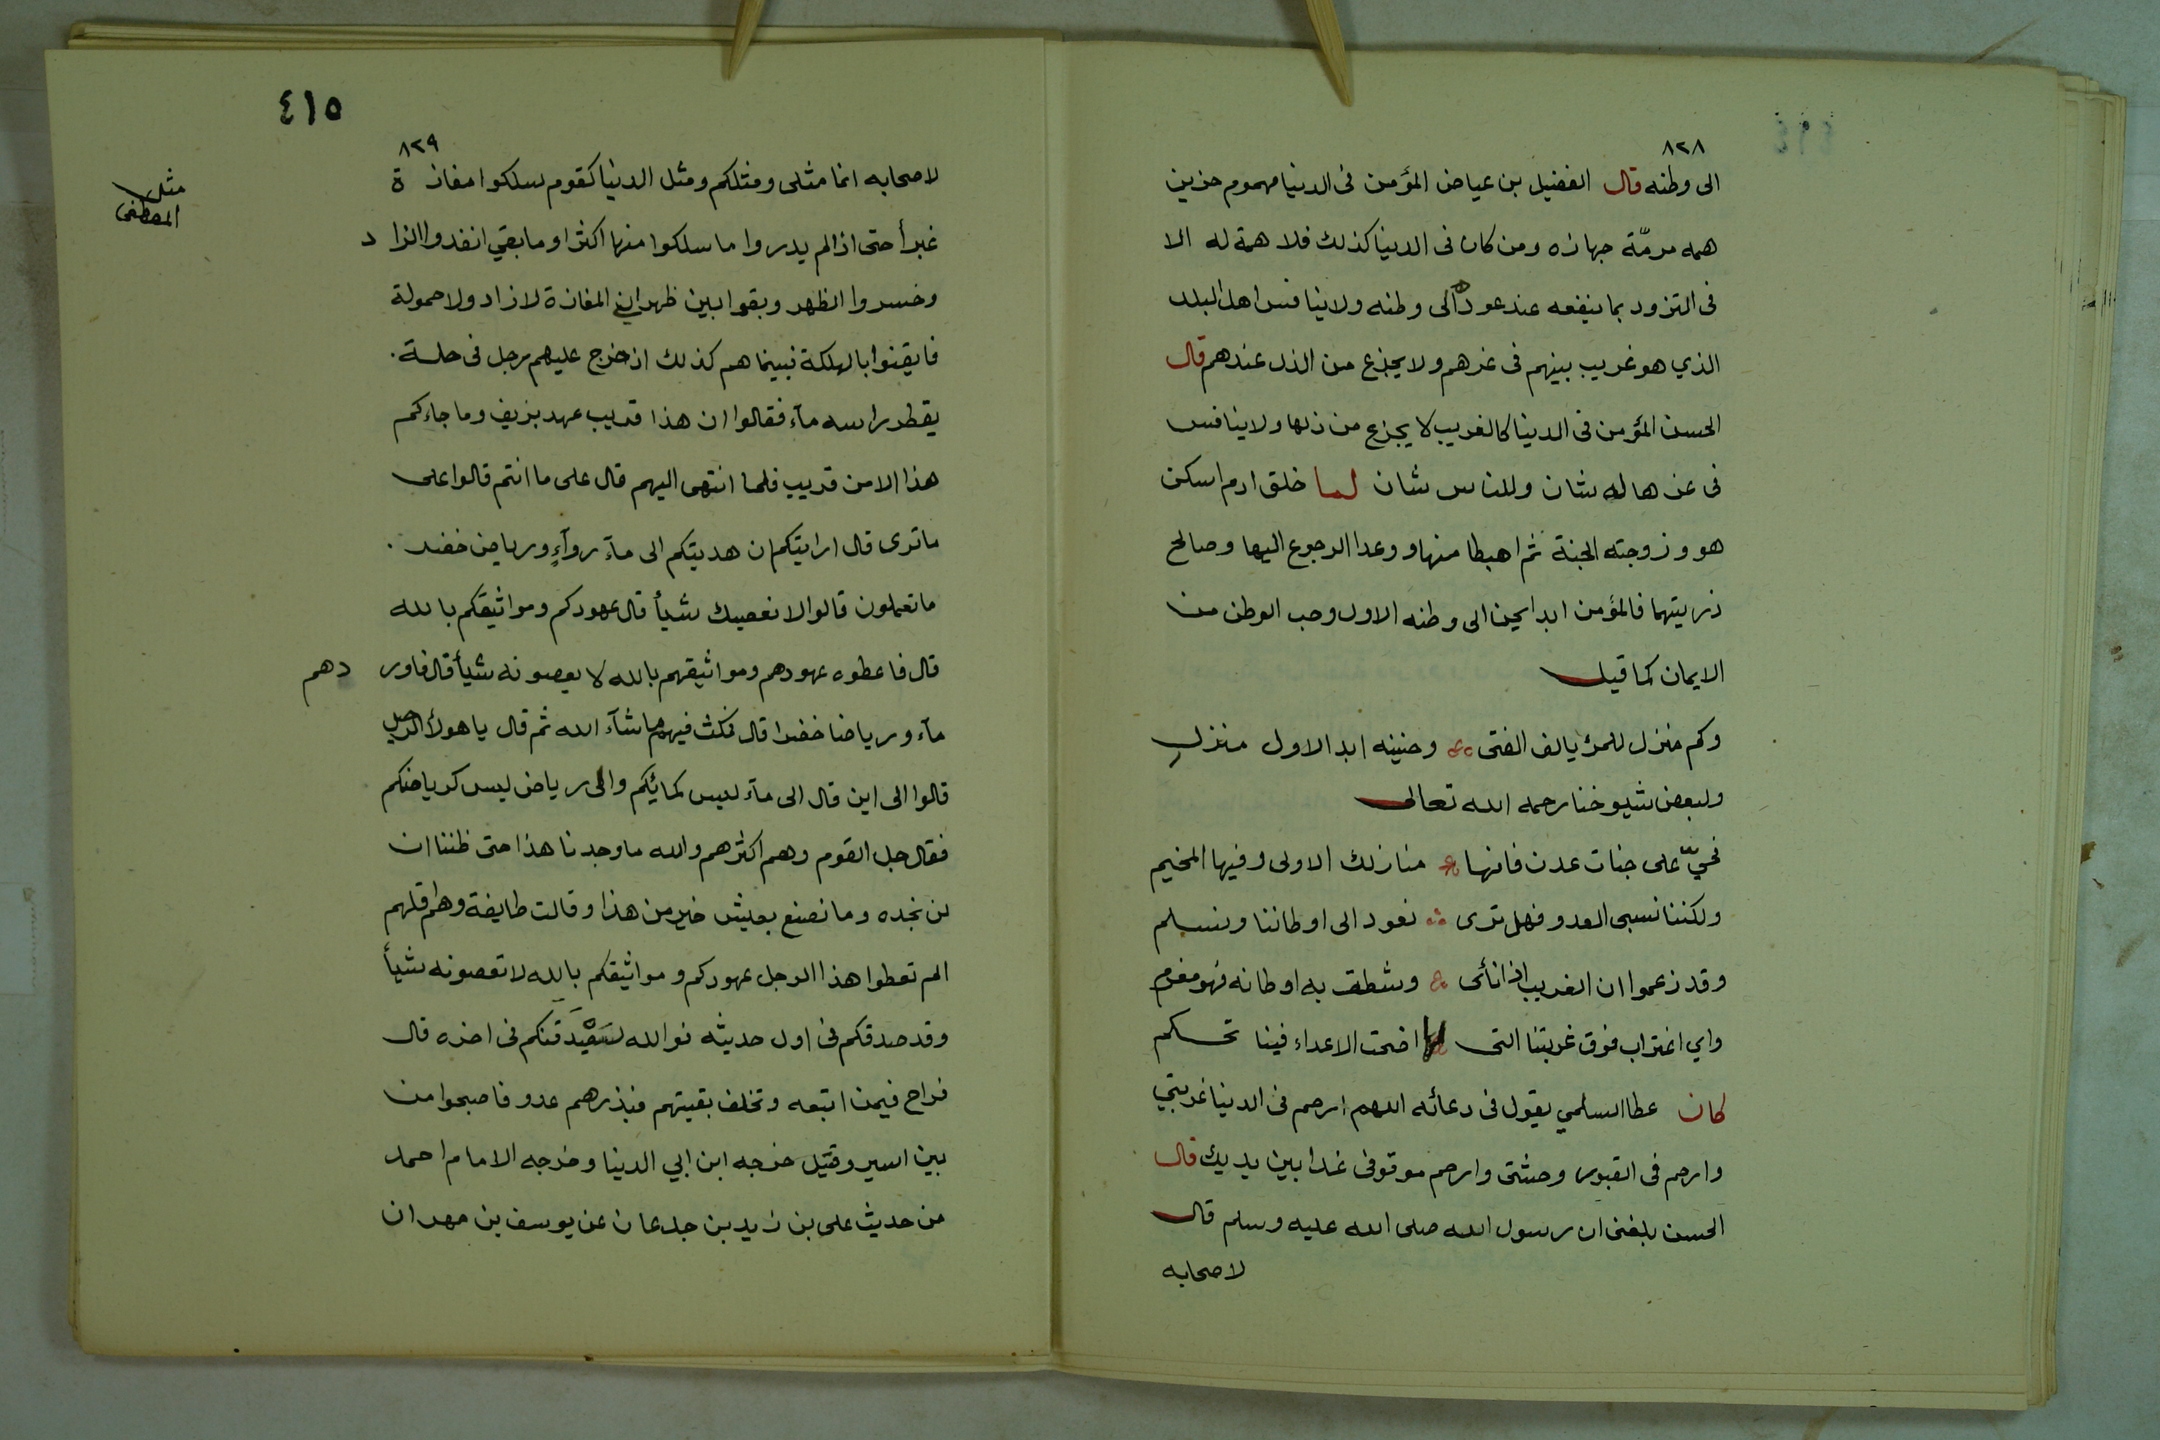 ٨٢٨
الى وطنه قال الفضيل بن عياض المؤمن فى الدنيا مهموم حزين
همه مرمّة جهازه ومن كان فى الدنيا كذلك فلا همة له الا
فى التزود بما ينفعه عند عوده الى وطنه ولا ينافس اهل البلد
الذي هو غريب بينهم فى عزهم ولا يجزع من الذل عندهم قال
الحسن المؤمن فى الدنيا كالغريب لا يجزع من ذلها ولا ينافس
فى عزها له شان وللناس شان لما خلق ادم اسكن
هو وزوجته الجنة ثم اهبطا منها ووعدا الرجوع اليها وصالح
ذريتهما فالمؤمن ابدا يحن الى وطنه الاول وحب الوطن من
الايمان كما قيل
وكم منزل للمرء يالف الفتى وحنينه ابدا لاول منزل
ولبعض شيوخنا رحمه الله تعالى
فحيّ على جنات عدن فانها منازلك الاولى وفيها المخيم
ولكننا نسبى العدو فهل ترى نعود الى اوطاننا ونسلم
وقد زعموا ان الغريب اذا نائى وشطت به اوطانه فهو مغرم
واي اغتراب فوق غربتنا التى لها اضحت الاعداء فينا تحكم
كان عطا السلمي يقول فى دعائه اللهم ارحم فى الدنيا غربتي
وارحم فى القبور وحشتى وارحم موقوفى غدا بين يديك قال
الحسن بلغنى ان رسول الله صلى الله عليه وسلم قال
لاصحابه
٤١٥
٨٢٩
لاصحابه انما مثلى ومثلكم ومثل الدنيا كقوم سلكوا مفازة
غبرأ حتى اذا لم يدروا ما سلكوا منها اكثر او ما بقي انفدوا الزاد
وخسروا الظهر وبقوا بين ظهراني المفازة لا زاد ولا حمولة
فايقنوا بالهلكة فبينما هم كذلك اذ خرج عليهم رجل فى حلة
يقطر راسه مآء فقالوا ان هذا قريب عهد بزيف وما جاءكم
هذا الا من قريب فلما انتهى اليهم قال على ما انتم قالوا على
ما ترى قال ارايتكم ان هديتكم الى مآء روآءٍ ورياض خضر
ما تعملون قالوا لا نعصيك شيأ قال عهودكم ومواثيقكم بالله
قال فاعطوه عهودهم ومواثيقهم بالله لا يعصونه شيأ قال فاوردهم
مآء ورياضا خضرا قال فمكث فيهم ما شآء الله ثم قال يا هولاء الرحيل
قالوا الى اين قال الى مآء ليس كمائكم والى رياض ليس كرياضكم
فقال جل القوم وهم اكثرهم والله ما وجدنا هذا حتى ظننا ان
لن نجده وما نصنع بعيش خير من هذا وقالت طايفة وهم اقلهم
الم تعطوا هذا الرجل عهودكم ومواثيقكم بالله لا تعصونه شيأ
وقد صدقكم فى اول حديثه فوالله ليصدقنكم فى اخره قال
فراح فيمن اتبعه وتخلف بقيتهم فبذرهم عدو فاصبحوا من
بين اسير وقتيل خرجه ابن ابي الدنيا وخرجه الامام احمد
من حديث على بن زيد بن جدعان عن يوسف بن مهران
مثل
المصطفى